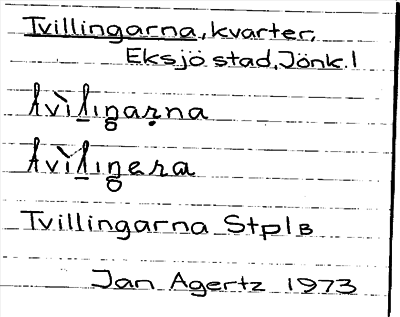 Tvillingarna, kvarter,
Eksjö stad, Jönk. l
Tvillingarna Stpl B
Jan Agertz 1973